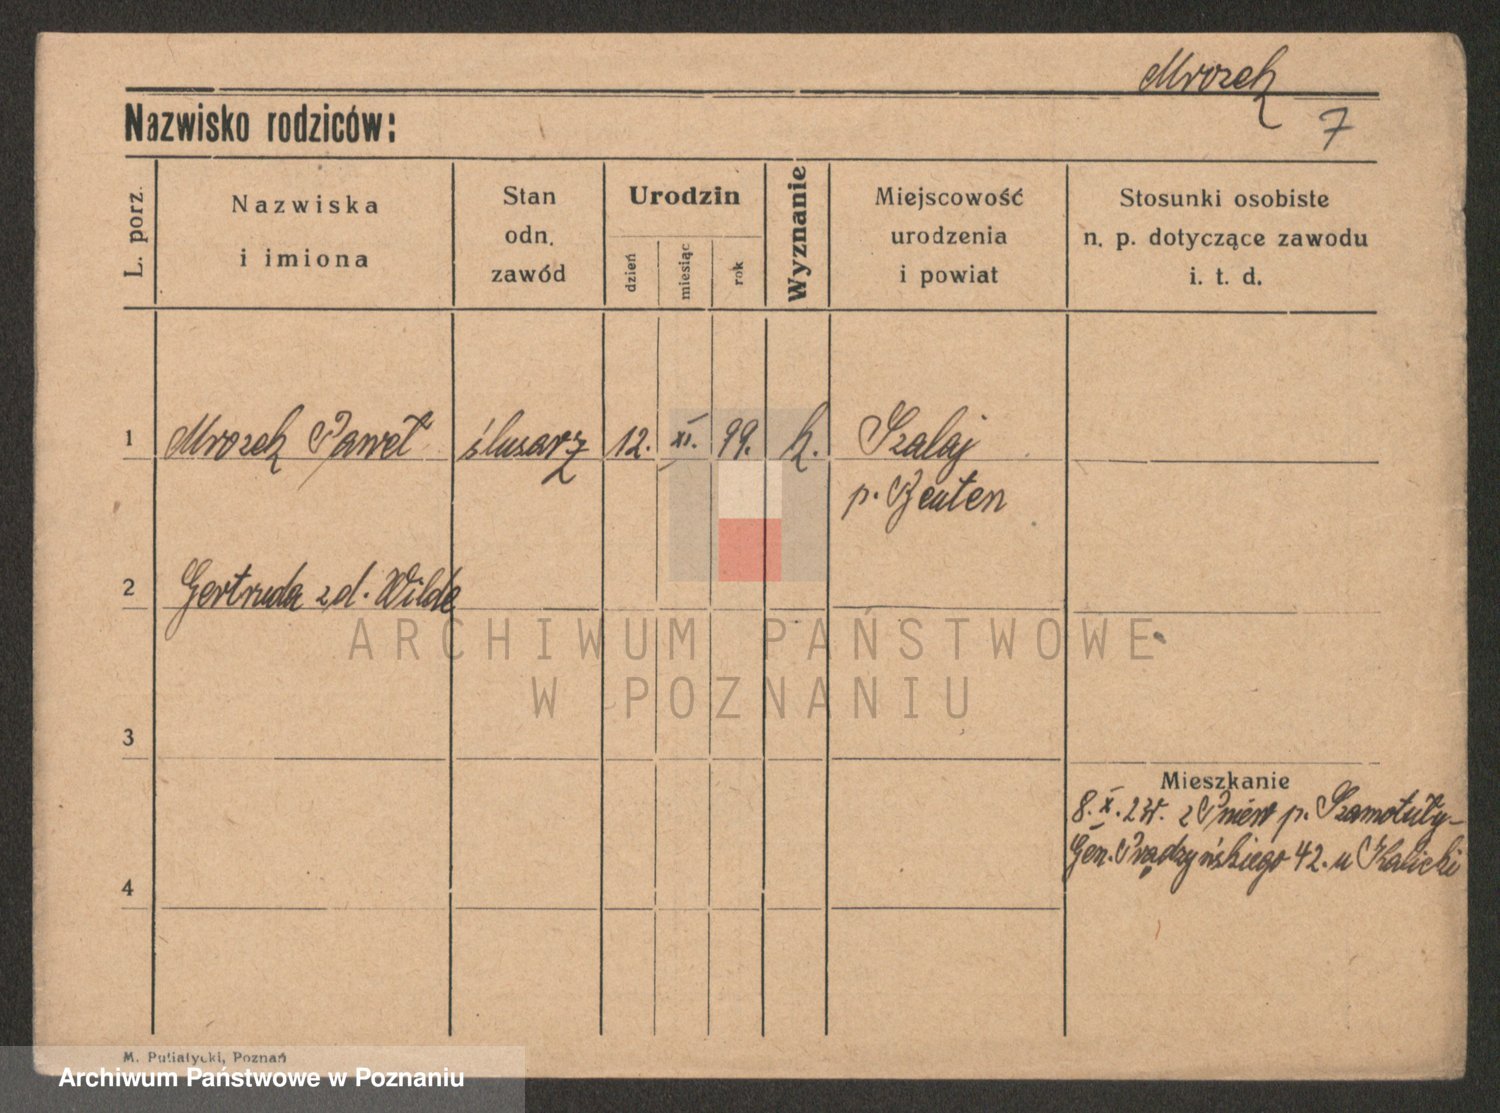 Mrozek
7
Nazwisko rodziców:
L. porz.
Nazwiska
i imiona
Stan
odn.
zawód
Urodzin
dzień
miesiąc
rok
Wyznanie
Miejscowość
urodzenia
i powiat
Stosunki osobiste
n. p. dotyczące zawodu
i. t. d.
1 Mrozek Paweł ślusarz 12. XI. 99. k. Szalaj
p. Beuten
2 Gertruda z d. Wilde
ARCHIWUM PAŃSTWOWE
W POZNANIU
3
Mieszkanie
8. X. z Pniew p. Szamotuły-
Gen. Prądzyńskiego 42. u Kalicki
4
M. Putiatycki, Poznań
Archiwum Państwowe w Poznaniu